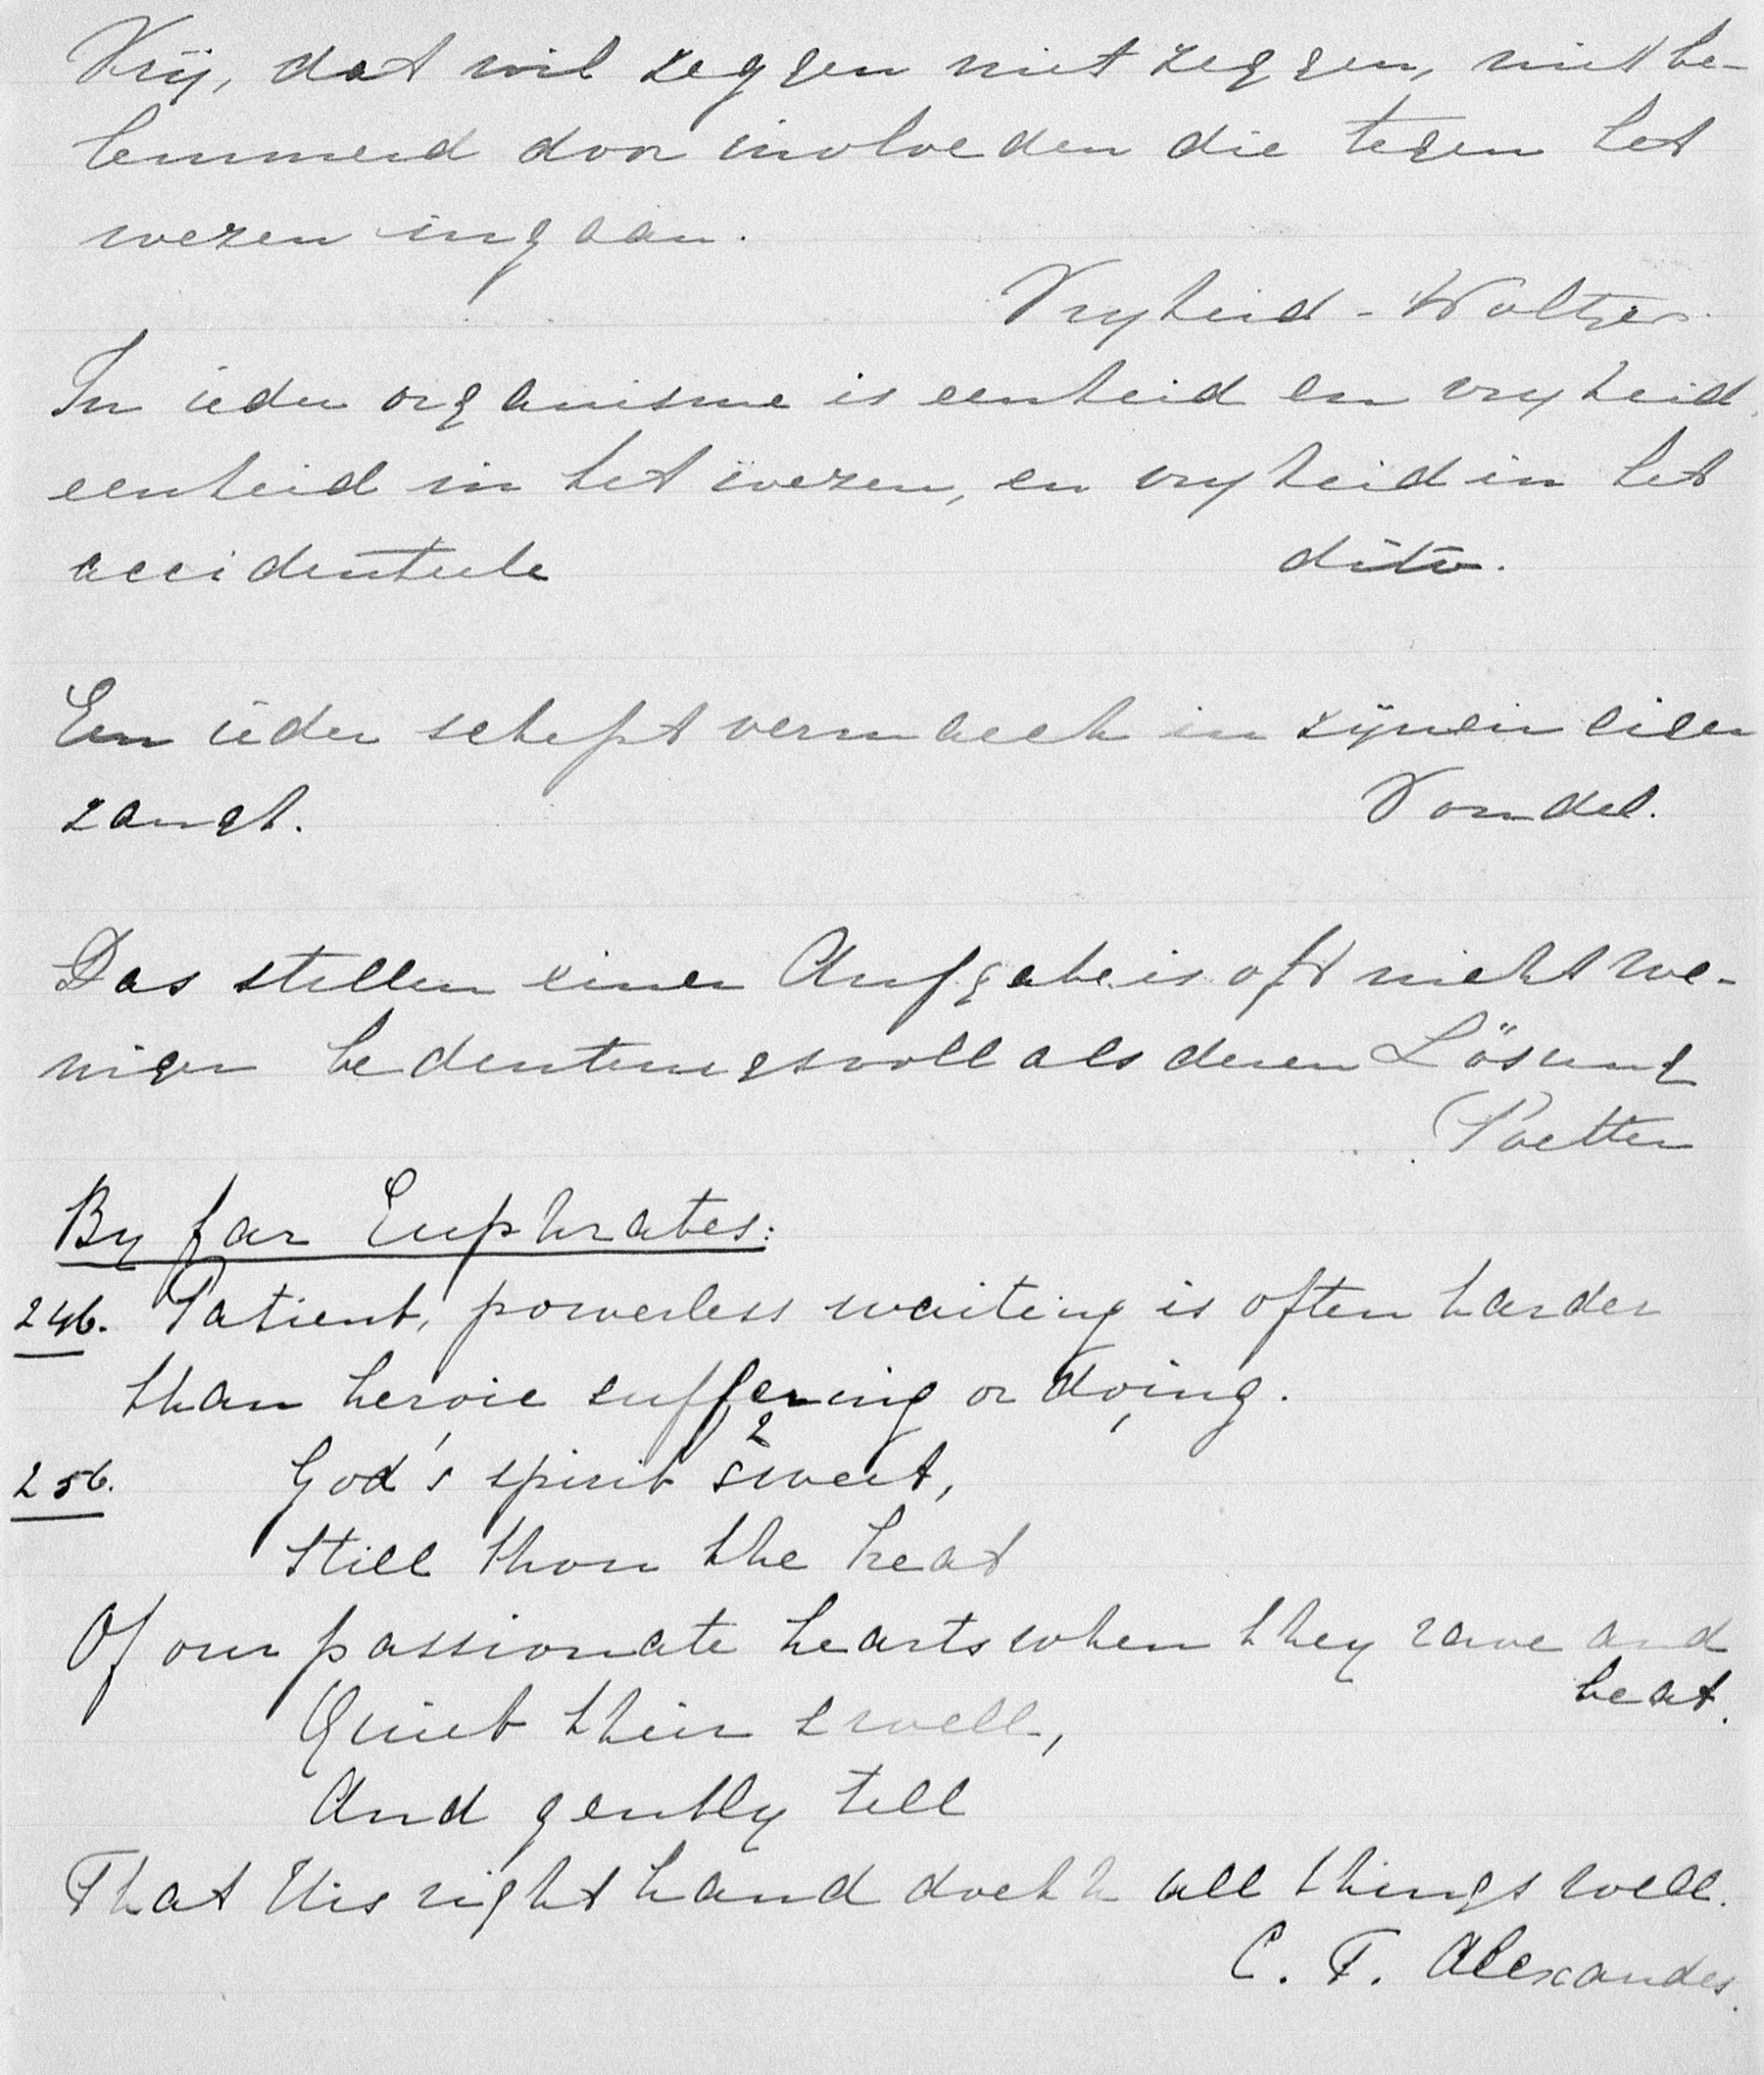 Vrij, dat wil zeggen niet zeggen, niet be-
lemmerd door invloeden die tegen het
wezen ingaan.
Vryheid - Woltjer.
In ieder organisme is eenheid en vryheid,
eenheid in het wezen, en vryheid in het
accidenteele
dito.
Een ieder schept vermaeck in zijnen eigen
zangh.
Vondel.
Das stellen einer Aufgabe is oft nicht we-
niger bedeutungsvoll als deren Lösung
By far Euphrates:
246. Patient, powerless waiting is often harder
than heroic suffering or doing.
256. God's spirit sweet,
Still thou the heat
Of our passionate hearts when they rave and
beat.
Quiet their swell,
And gently tell
That His right hand doeth all things well.
C. F. Alexander.